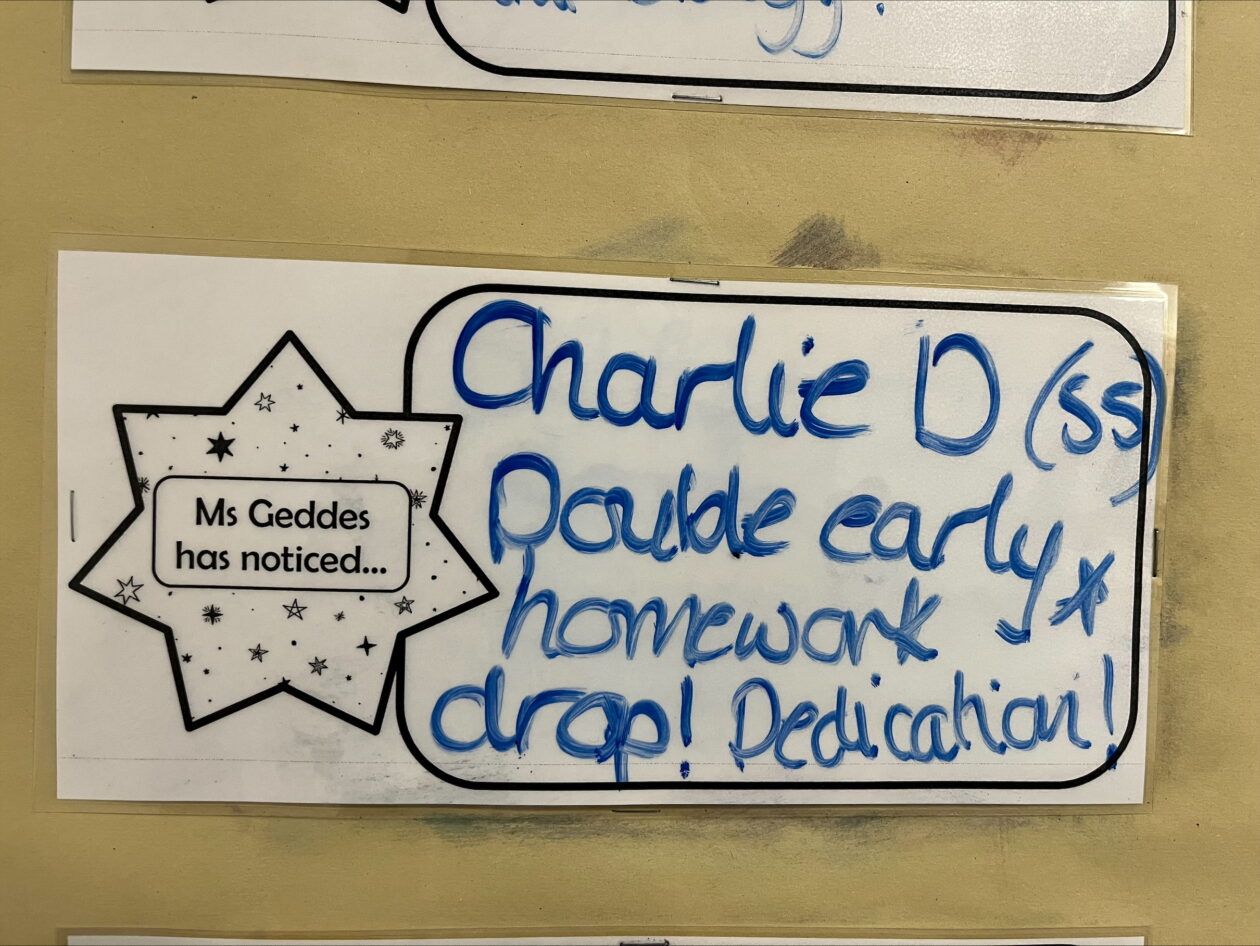 Ms Geddes
has noticed...
Charlie D (SS)
Double early
homework
drop! Dedication!